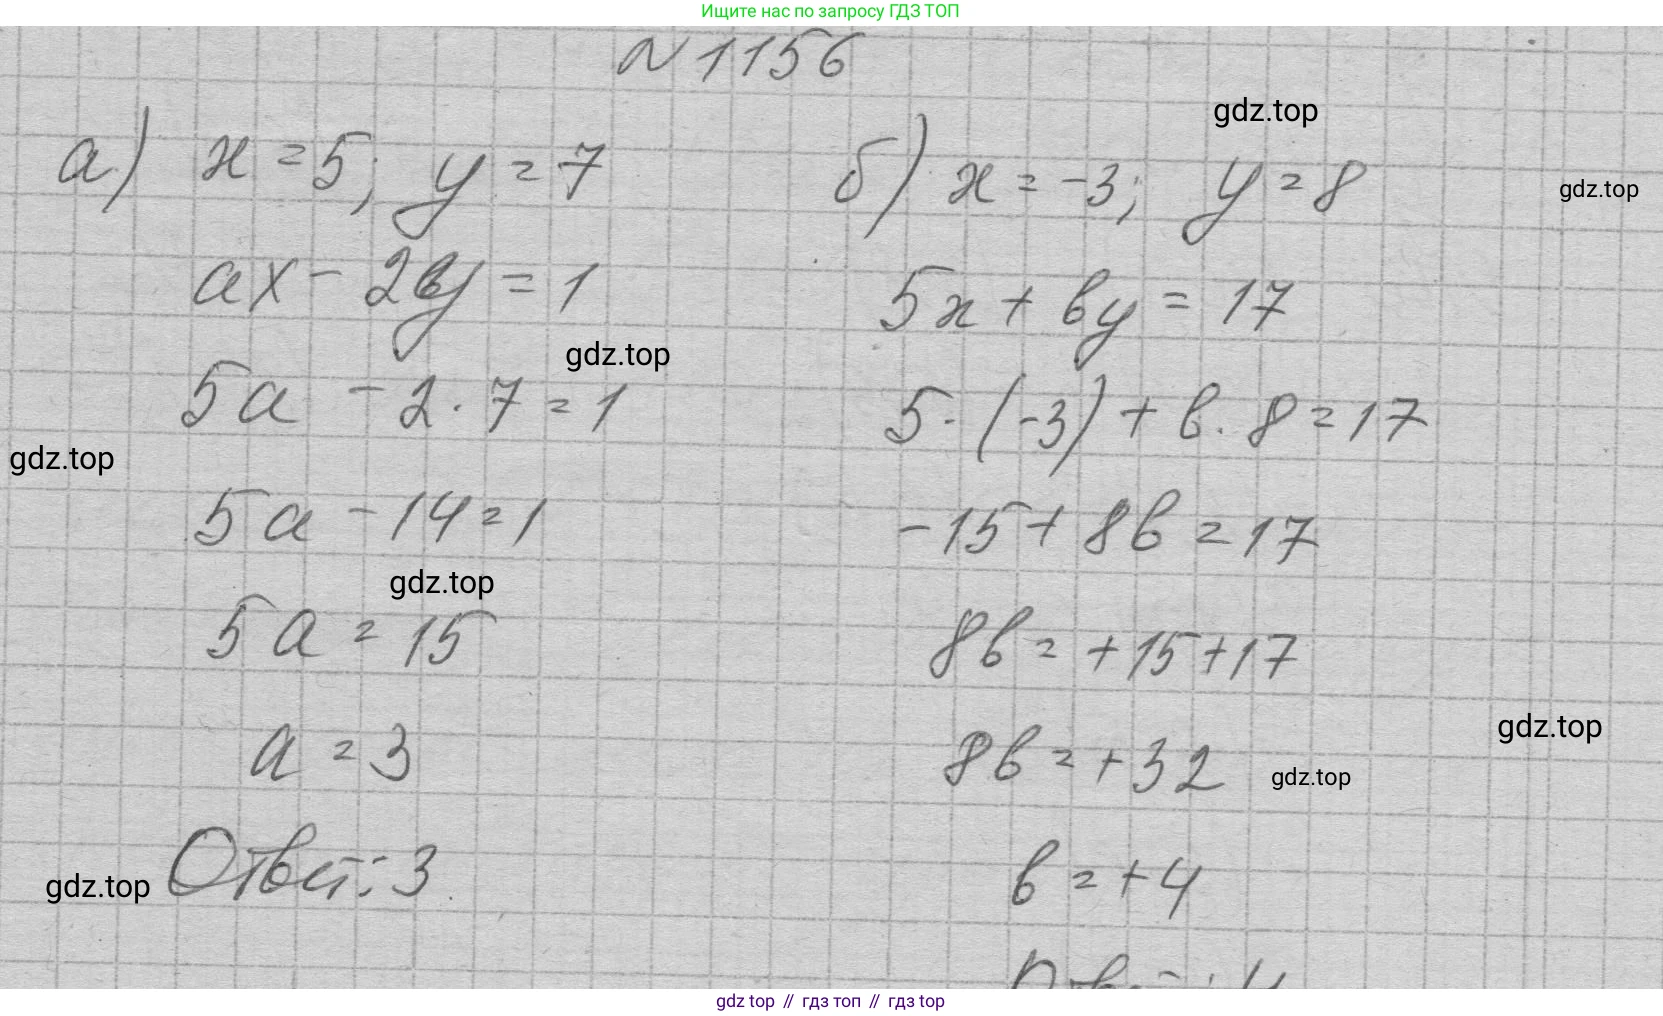 Ищите нас по запросу ГДЗ ТОП
N 1156
gdz.top
а) x = 5; y = 7
ax - 2y = 1
5a - 2 · 7 = 1
5a - 14 = 1
5a = 15
a = 3
Ответ: 3
б) x = -3; y = 8
5x + by = 17
5 · (-3) + b · 8 = 17
-15 + 8b = 17
8b = +15 + 17
8b = +32
b = +4
Ответ: 4
gdz.top
gdz.top
gdz.top
gdz.top
gdz.top
gdz.top
gdz.top
gdz top // гдз топ // гдз top